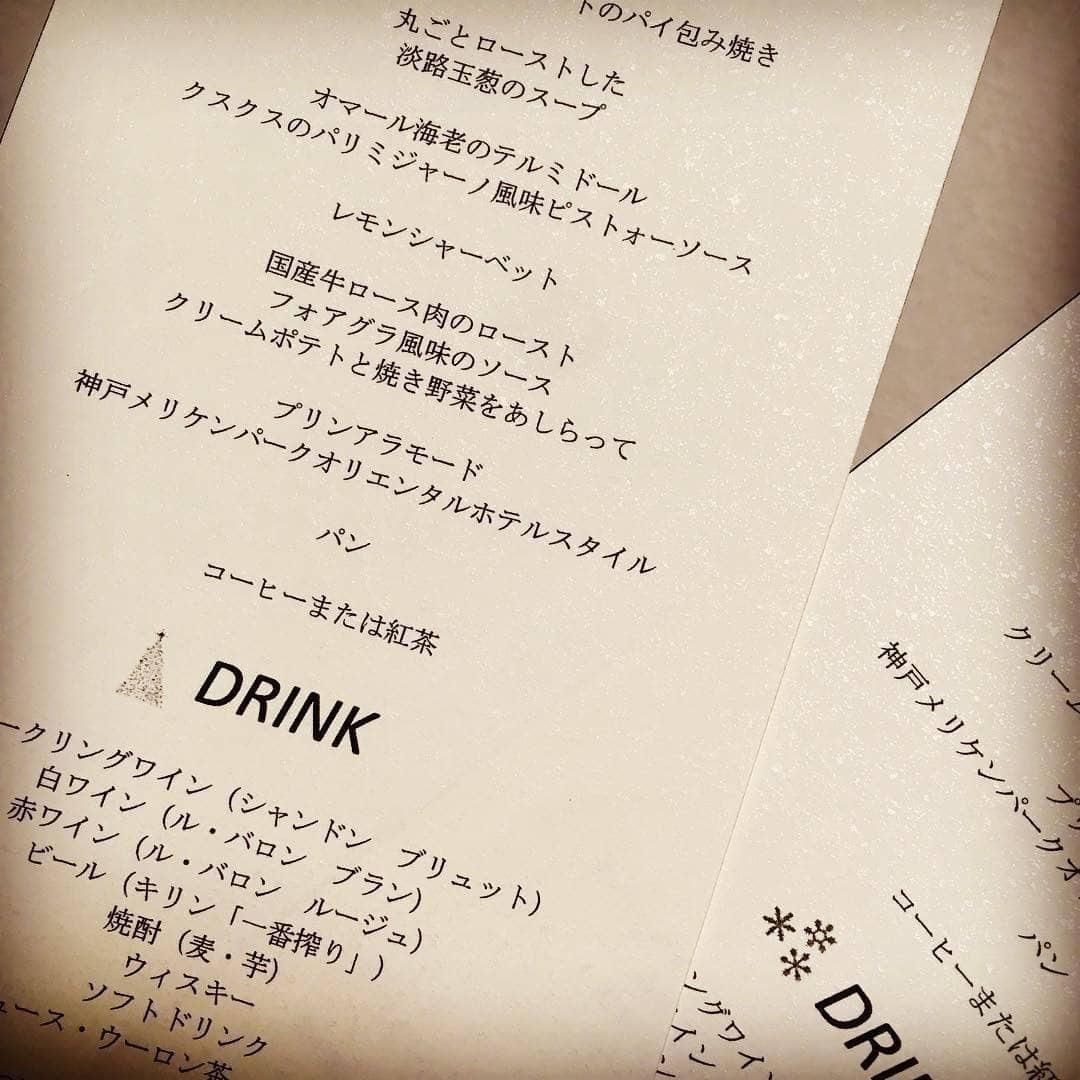 トのパイ包み焼き
丸ごとローストした
淡路玉葱のスープ
オマール海老のテルミドール
クスクスのパリミジャーノ風味ピストォーソース
レモンシャーベット
国産牛ロース肉のロースト
フォアグラ風味のソース
クリームポテトと焼き野菜をあしらって
プリンアラモード
神戸メリケンパークオリエンタルホテルスタイル
パン
コーヒーまたは紅茶
DRINK
ークリングワイン（シャンドン　ブリュット）
白ワイン（ル・バロン　ブラン）
赤ワイン（ル・バロン　ルージュ）
ビール（キリン「一番搾り」）
焼酎（麦・芋）
ウィスキー
ソフトドリンク
ュース・ウーロン茶
クリーム
プリ
神戸メリケンパークオ
パン
コーヒーまたは紅
DRI
ングワイ
イン